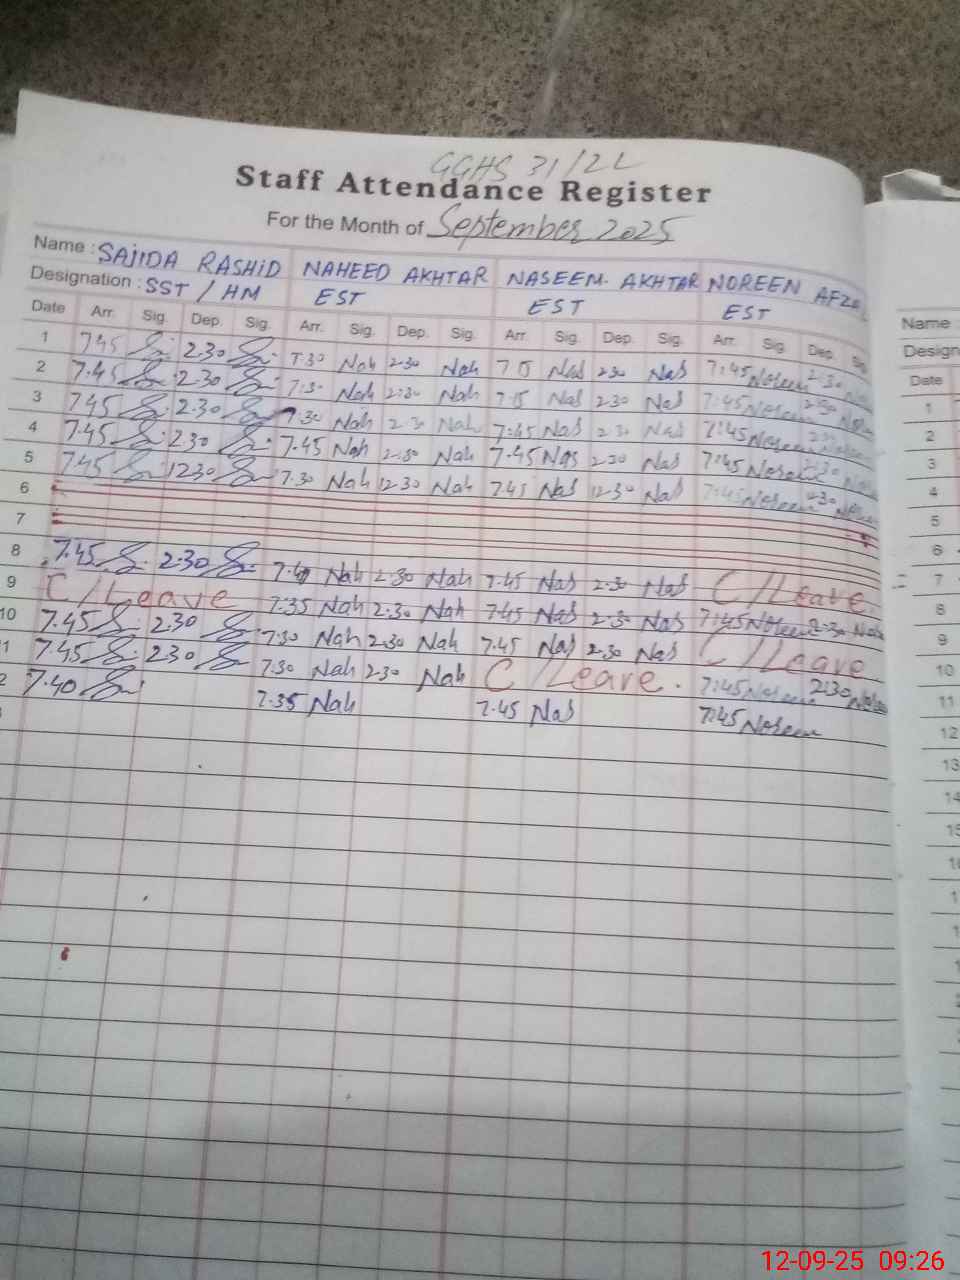 GGHS 31/2L
Staff Attendance Register
For the Month of September 2025
Name : SAJIDA RASHID NAHEED AKHTAR NASEEM AKHTAR NOREEN AFZAL
Designation : SST / HM EST EST EST
Date Arr. Sig. Dep. Sig. Arr. Sig. Dep. Sig. Arr. Sig. Dep. Sig. Arr. Sig. Dep. Sig.
1 745 2.30 7.30 Nah 2.30 Nah Nas 2.30 Nas 7:45 Noreen 2.30
2 7.45 2.30 7:30 Nah 2:30 Nah Nas 2.30 Nas 7:45 Noreen 2:30
3 745 2.30 7.30 Nah 2.30 Nah 7:45 Nas 2.30 Nas 7:45 Noreen
4 7.45 2.30 7.45 Nah 2.30 Nah 7.45 Nas 2.30 Nas 7:45 Noreen 2:30
5 7.45 12.30 7.30 Nah 12.30 Nah 7.45 Nas 12.30 Nas 7:45 Noreen 12:30
6
7
8 7.45 2:30 7.40 Nah 2.30 Nah 7.45 Nas 2.30 Nas C/Leave
9 C/Leave 7.35 Nah 2.30 Nah 7.45 Nas 2.30 Nas 7:45 Noreen 2:30
10 7.45 2.30 7.30 Nah 2.30 Nah 7.45 Nas 2.30 Nas C/Leave
1 7.45 2.30 7.30 Nah 2.30 Nah C/Leave. 7:45 Noreen 2:30
2 7.40 7.35 Nah 7.45 Nas 7:45 Noreen
Name :
Design
Date
1
2
3
4
5
6
7
8
9
10
11
12
13
14
12-09-25 09:26